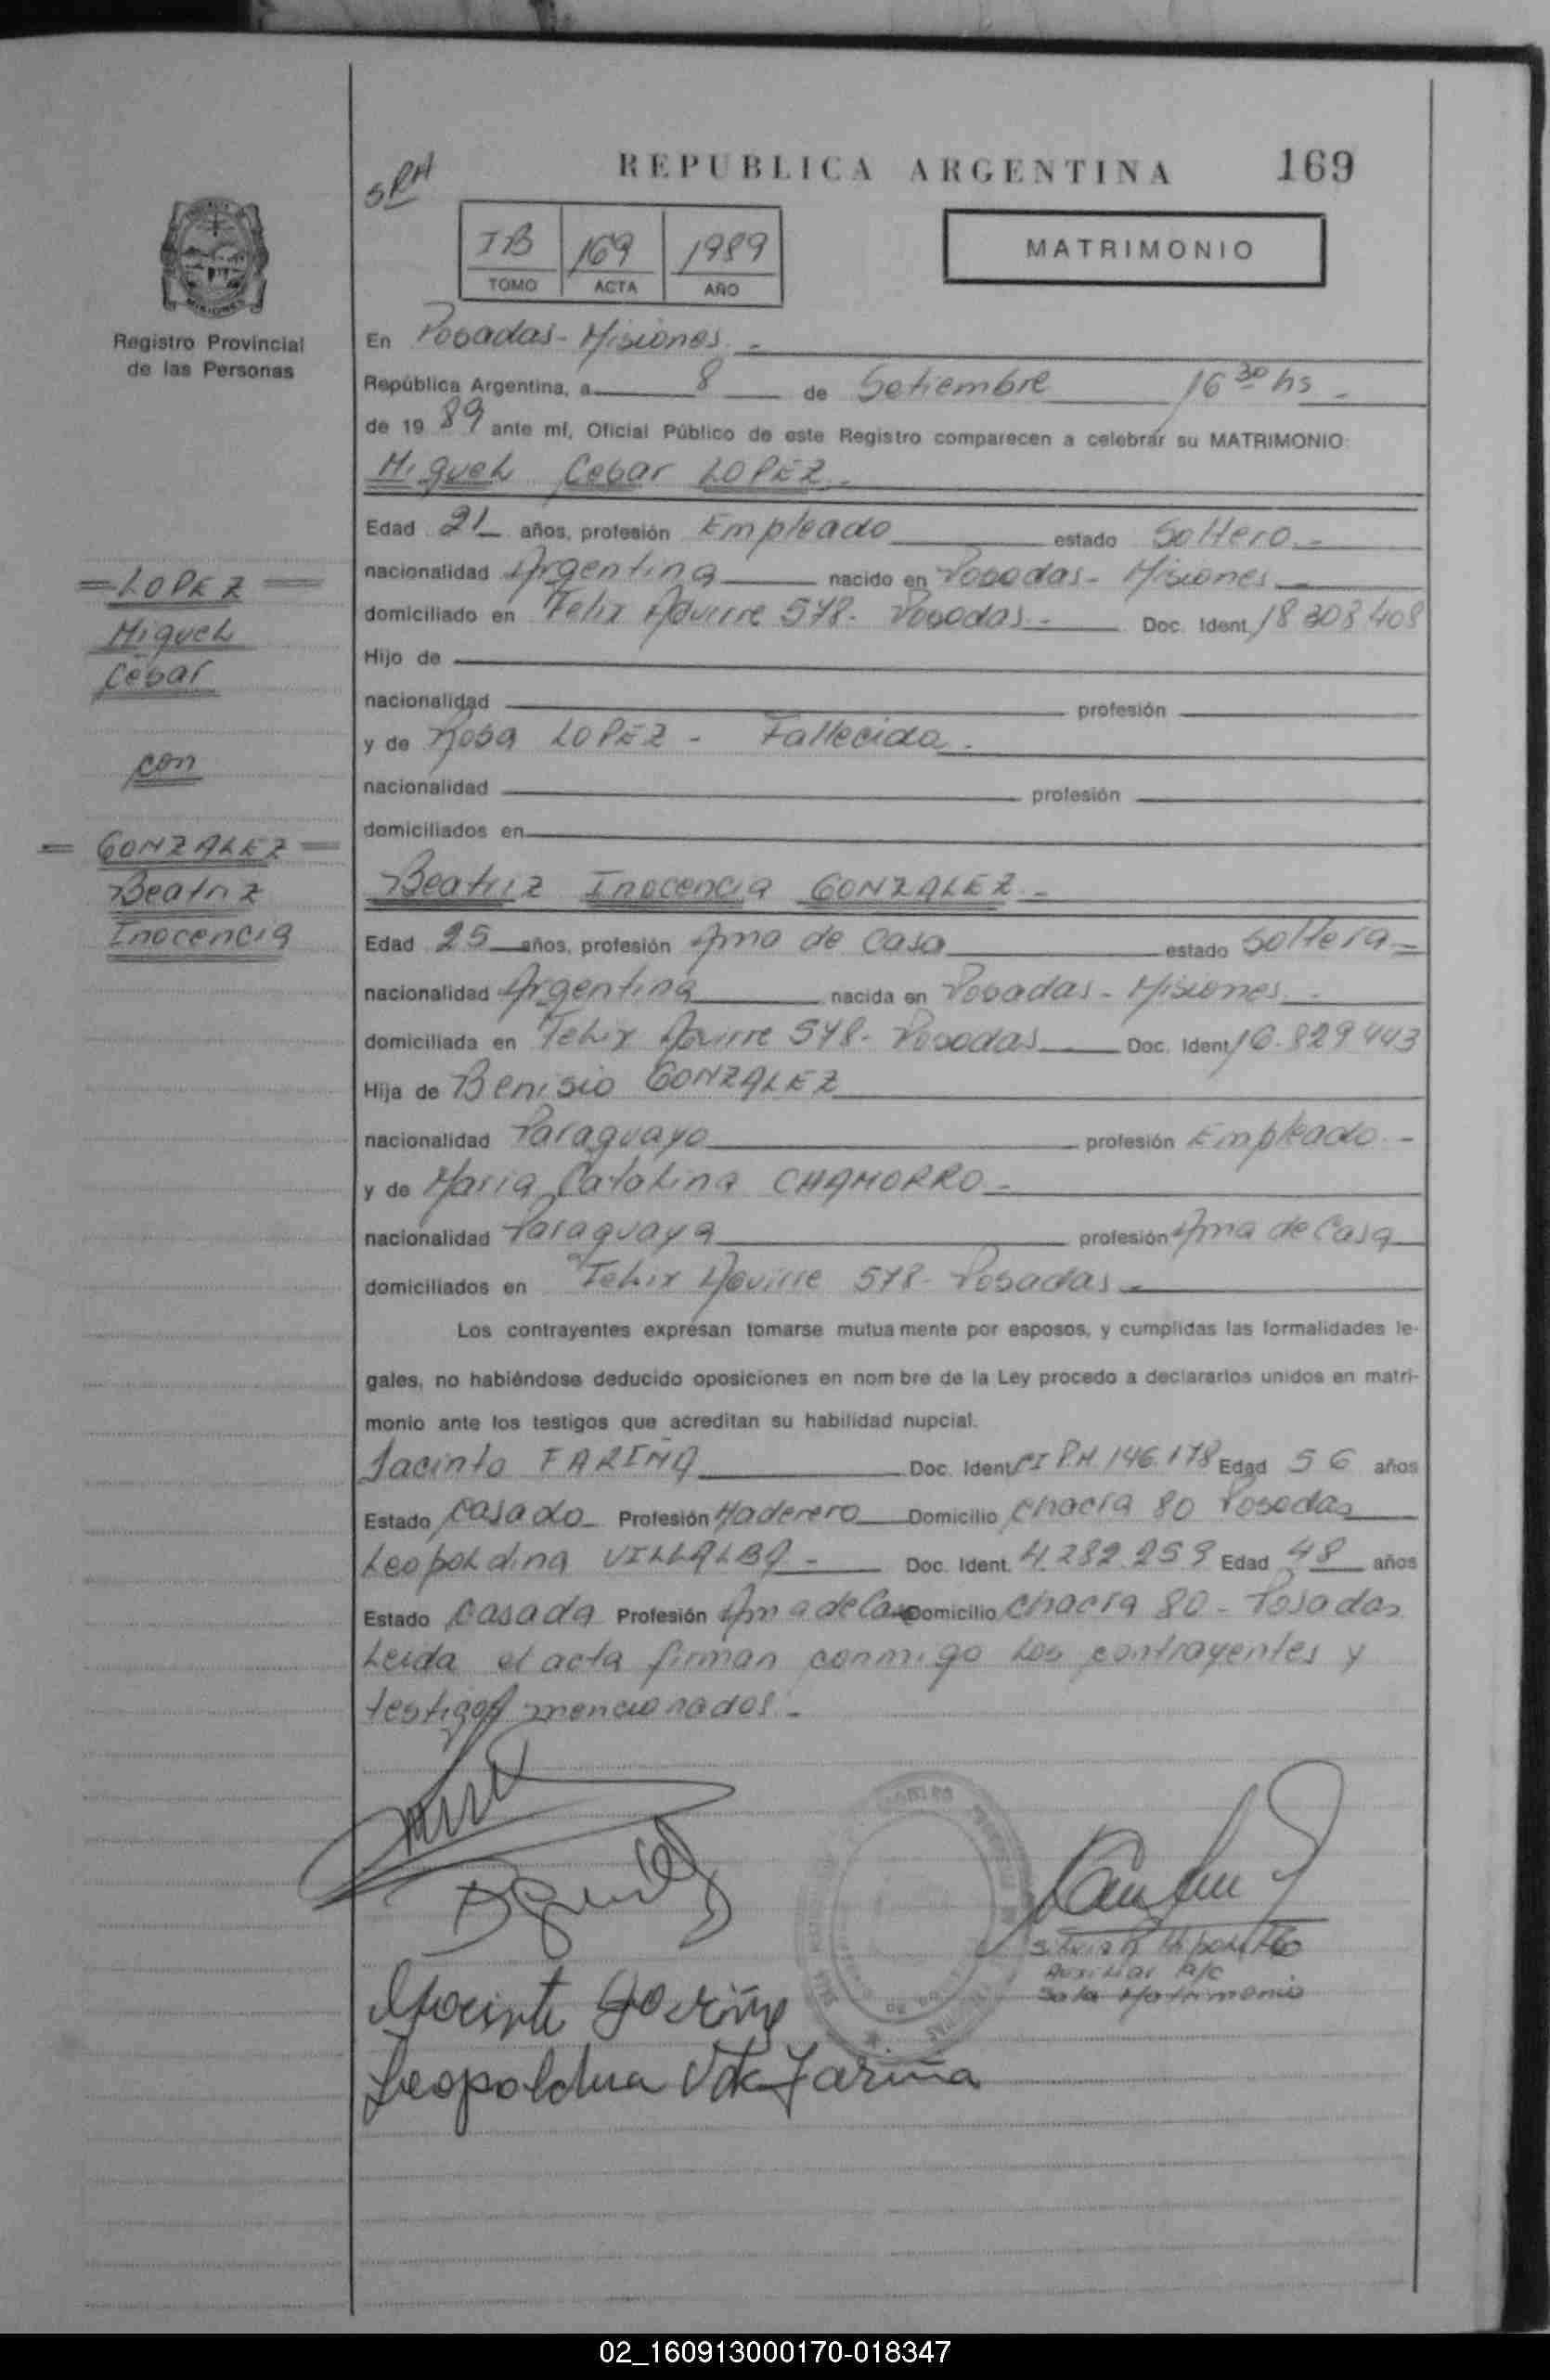 REPUBLICA ARGENTINA 169
SRH
IB 169 1989
TOMO ACTA AÑO
MATRIMONIO
MISIONES
Registro Provincial
de las Personas
= LOPEZ =
Miguel
Cesar
con
= GONZALEZ =
Beatriz
Inocencia
En Posadas - Misiones. -
República Argentina, a 8 de Setiembre 16 30 hs. -
de 19 89 ante mí, Oficial Público de este Registro comparecen a celebrar su MATRIMONIO:
Miguel Cesar LOPEZ. -
Edad 21 años, profesión Empleado estado Soltero. -
nacionalidad Argentina nacido en Posadas - Misiones. -
domiciliado en Felix Aguirre 578 - Posadas. - Doc. Ident. 18 308 408
Hijo de
nacionalidad profesión
y de Rosa LOPEZ - Fallecida. -
nacionalidad profesión
domiciliados en
Beatriz Inocencia GONZALEZ. -
Edad 25 años, profesión Ama de Casa estado Soltera -
nacionalidad Argentina nacida en Posadas - Misiones. -
domiciliada en Felix Aguirre 578 - Posadas Doc. Ident. 16.829 443
Hija de Benisio GONZALEZ
nacionalidad Paraguayo profesión Empleado. -
y de Maria Catalina CHAMORRO -
nacionalidad Paraguaya profesión Ama de Casa
domiciliados en Felix Aguirre 578 - Posadas. -
Los contrayentes expresan tomarse mutua mente por esposos, y cumplidas las formalidades le-
gales, no habiéndose deducido oposiciones en nom bre de la Ley procedo a declararlos unidos en matri-
monio ante los testigos que acreditan su habilidad nupcial.
Jacinto FARIÑA Doc. Ident. CI P.M. 146.178 Edad 56 años
Estado Casado Profesión Maderero Domicilio Chacra 80 Posadas
Leopoldina VILLALBA - Doc. Ident. 4.282.259 Edad 48 años
Estado Casada Profesión Ama de Casa Domicilio Chacra 80 - Posadas
Leida el acta firman conmigo los contrayentes y
testigos mencionados. -
Auxiliar a/c
Sala Matrimonio
Jacinto Fariña
Leopoldina V de Fariña
02_160913000170-018347